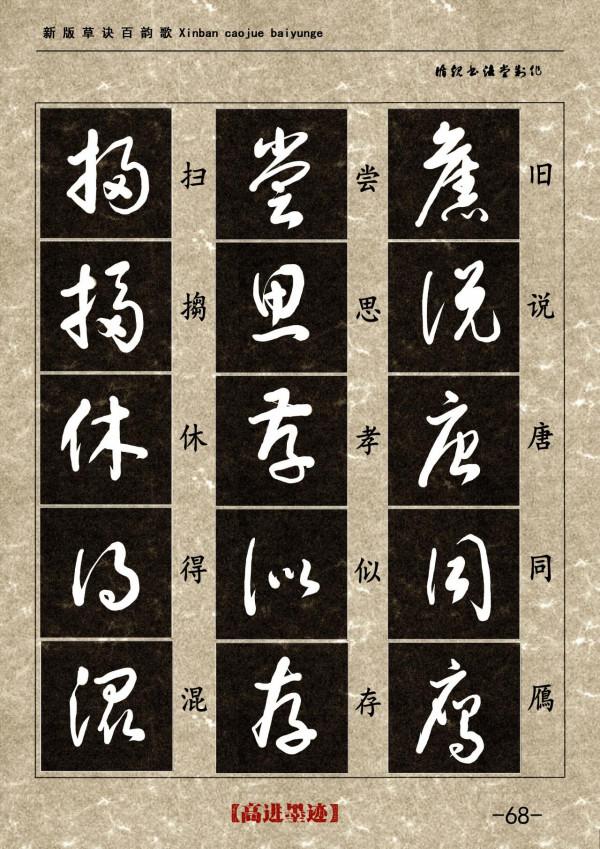 新版草诀百韵歌 Xinban caojue baiyunge
旧说唐同鴈
尝思孝似存
扫搊休得混
【高进墨迹】
-68-